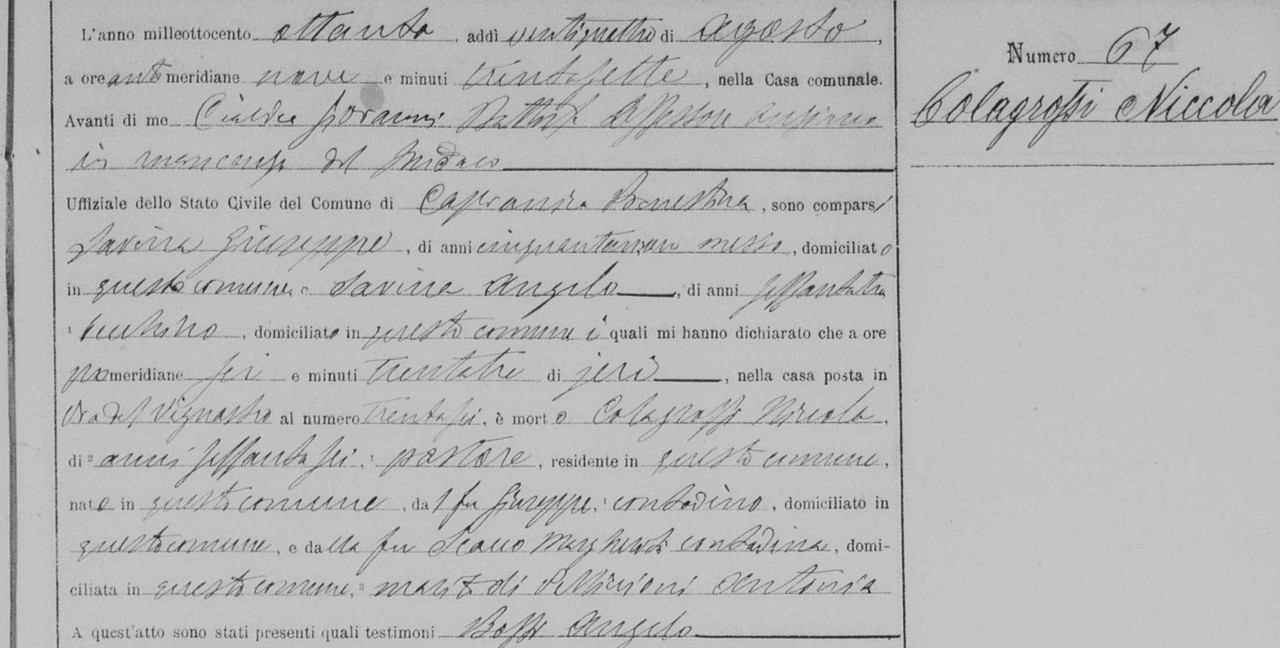 L'anno milleottocento ottanta, addì ventiquattro di Agosto,
a ore antimeridiane nove e minuti trentasette, nella Casa comunale.
Avanti di me Giovanni Battista Assessore anziano
in mancanza del Sindaco
Uffiziale dello Stato Civile del Comune di Capranica Prenestina, sono comparsi
Savina Giuseppe, di anni messo, domiciliato
in questo comune e Savina Angelo, di anni settantatre
becchino, domiciliato in questo comune i quali mi hanno dichiarato che a ore
pomeridiane sei e minuti trentatre di jeri, nella casa posta in
Via del al numero trentasei, è morto Colagrossi Nicola,
di ² anni settantasei, ³ pastore, residente in questo comune,
nato in questo comune, dal fu Giuseppe, ³ contadino, domiciliato in
questo comune, e dalla fu Margherita contadina, domi-
ciliata in questo comune, ³ marito di Antonia
A quest'atto sono stati presenti quali testimoni Angelo
Numero 67
Colagrossi Niccola